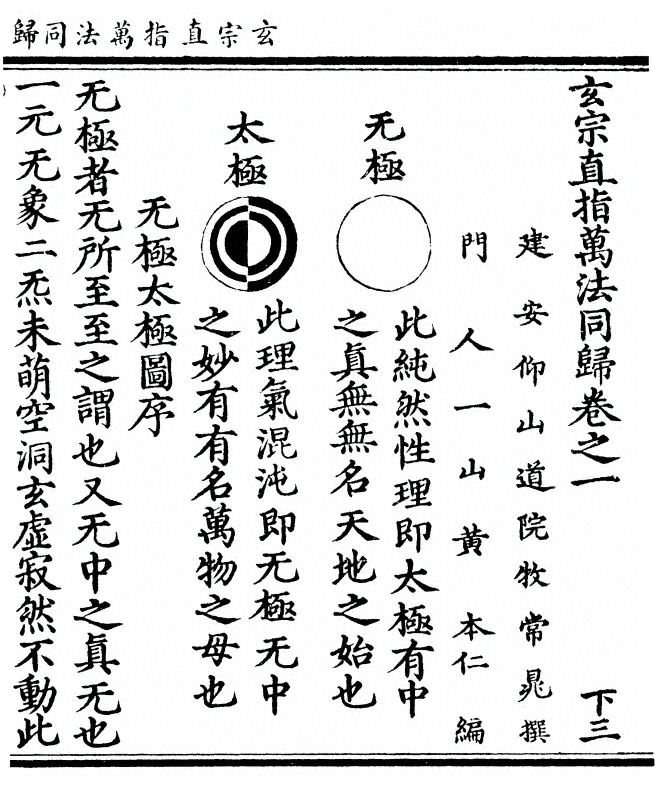 玄宗直指萬法同歸
玄宗直指萬法同歸卷之一 下三
建安仰山道院牧常晁撰
門人一山黃本仁編
无極
此純然性理即太極有中
之真無無名天地之始也
太極
此理氣混沌即无極无中
之妙有有名萬物之母也
无極太極圖序
无極者无所至至之謂也又无中之真无也
一元无象二炁未萌空洞玄虛寂然不動此